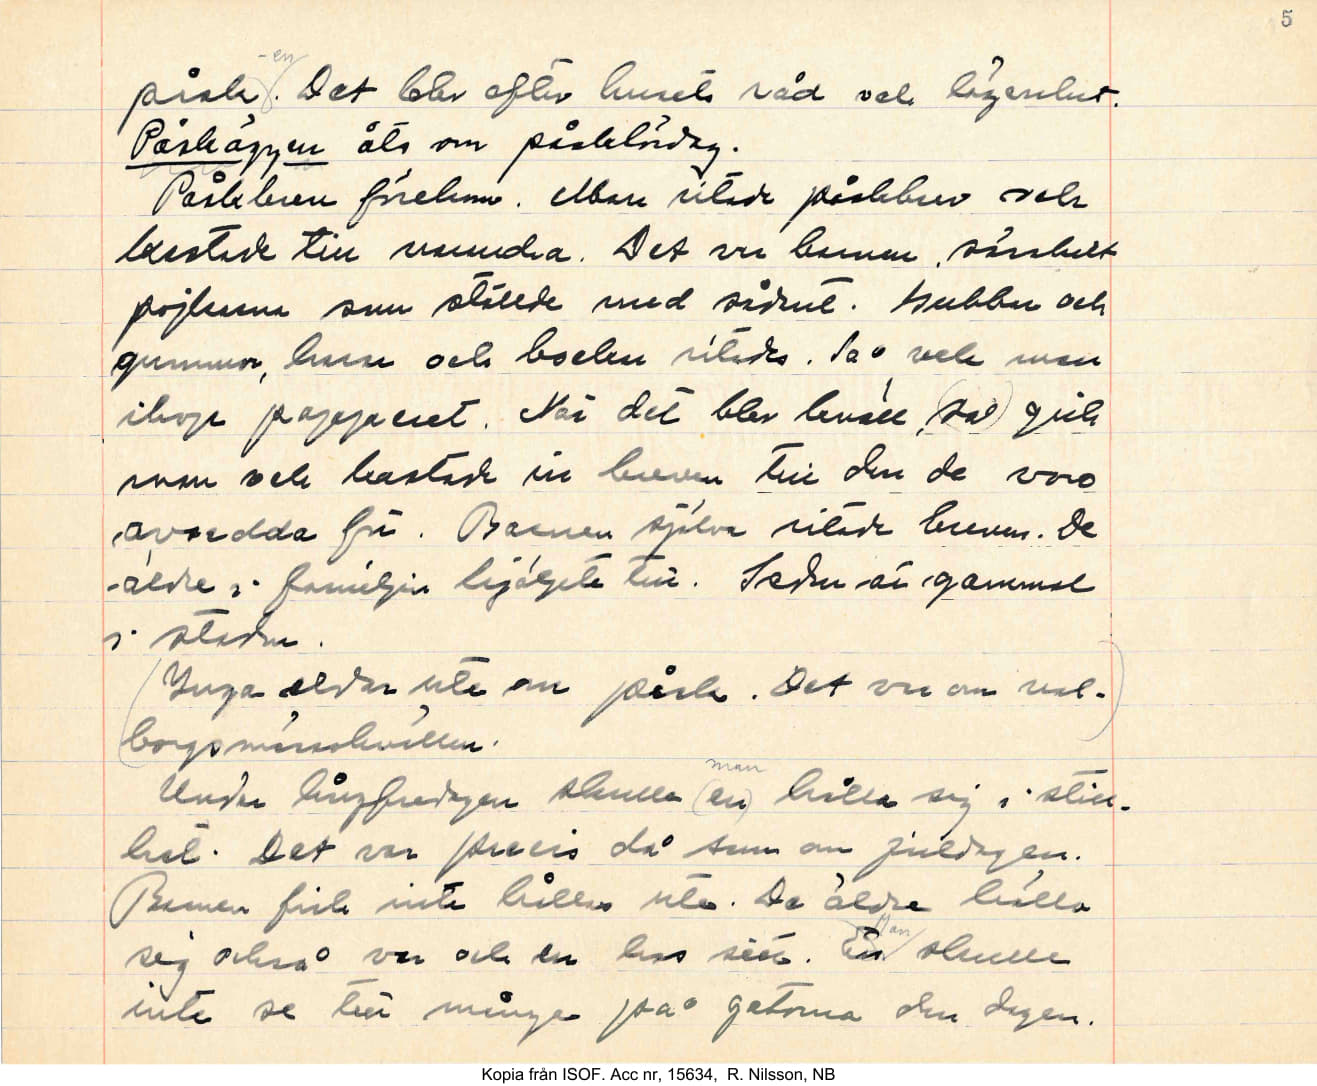 5
-en
påsk. Det blev efter husets råd och lägenhet.
Påskäggen åts om påsklördag.
Påskbrev förekom. Man ritade påskbrev och
kastade till varandra. Det var barnen, särskilt
pojkarna som ställde med sådant. Gubbar och
gummor, harar och bockar ritades. Så vek man
ihop papperet. När det blev kväll, (så) gick
man och kastade in breven till dem de voro
avsedda för. Barnen själva ritade breven. De
äldre i familjen hjälpte till. Seden är gammal
i staden.
(Inga eldar ute om påsk. Det var om val-
borgsmässokvällen.)
man
Under långfredagen skulle (en) hålla sig i still-
het. Det var precis då som om juldagen.
Barnen fick inte hållas ute. De äldre hålla
Man
sig också var och en hos sitt. En skulle
inte se till många på gatorna den dagen.
Kopia från ISOF. Acc nr, 15634, R. Nilsson, NB